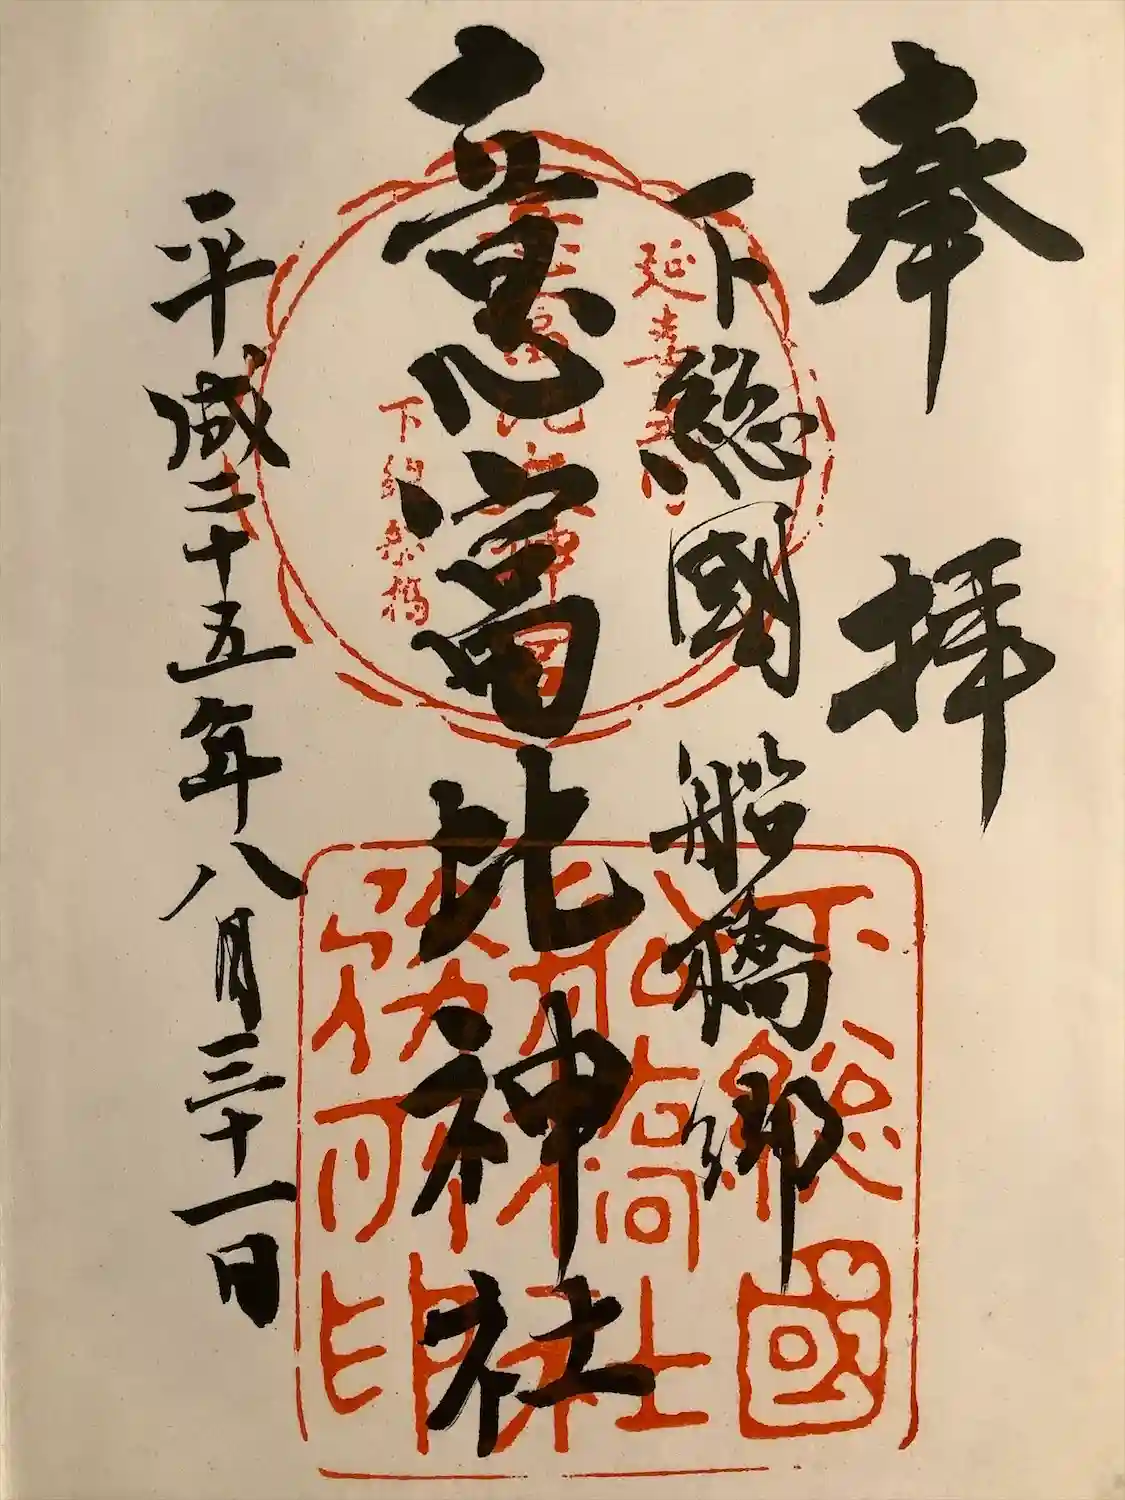 奉拝
下総國船橋郷
意富比神社
平成二十五年八月三十一日
延喜式内
意富比神社
下総船橋
下総國
船橋神社
務所印